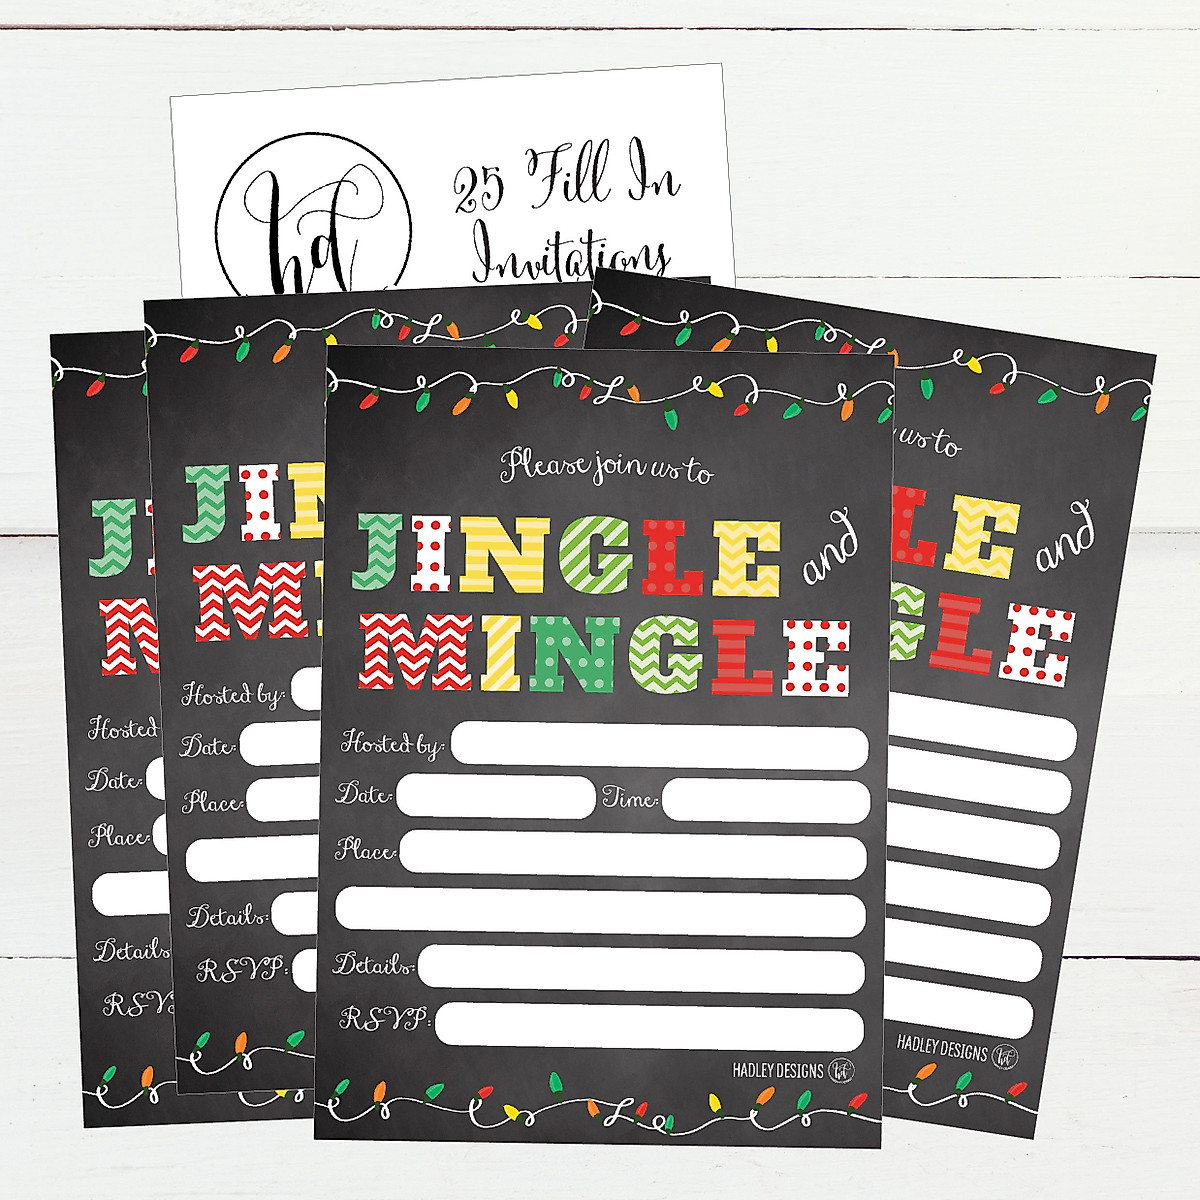 hd
25 Fill In
Invitations
Please join us to
JINGLE and
MINGLE
Hosted by:
Date: Time:
Place:
Details:
RSVP:
HADLEY DESIGNS hd
JIN
MI
Hosted by:
Date:
Place:
Details:
RSVP:
J
M
Hosted
Date:
Place:
Details
RSVP
us to
LE and
GLE
HADLEY DESIGNS hd